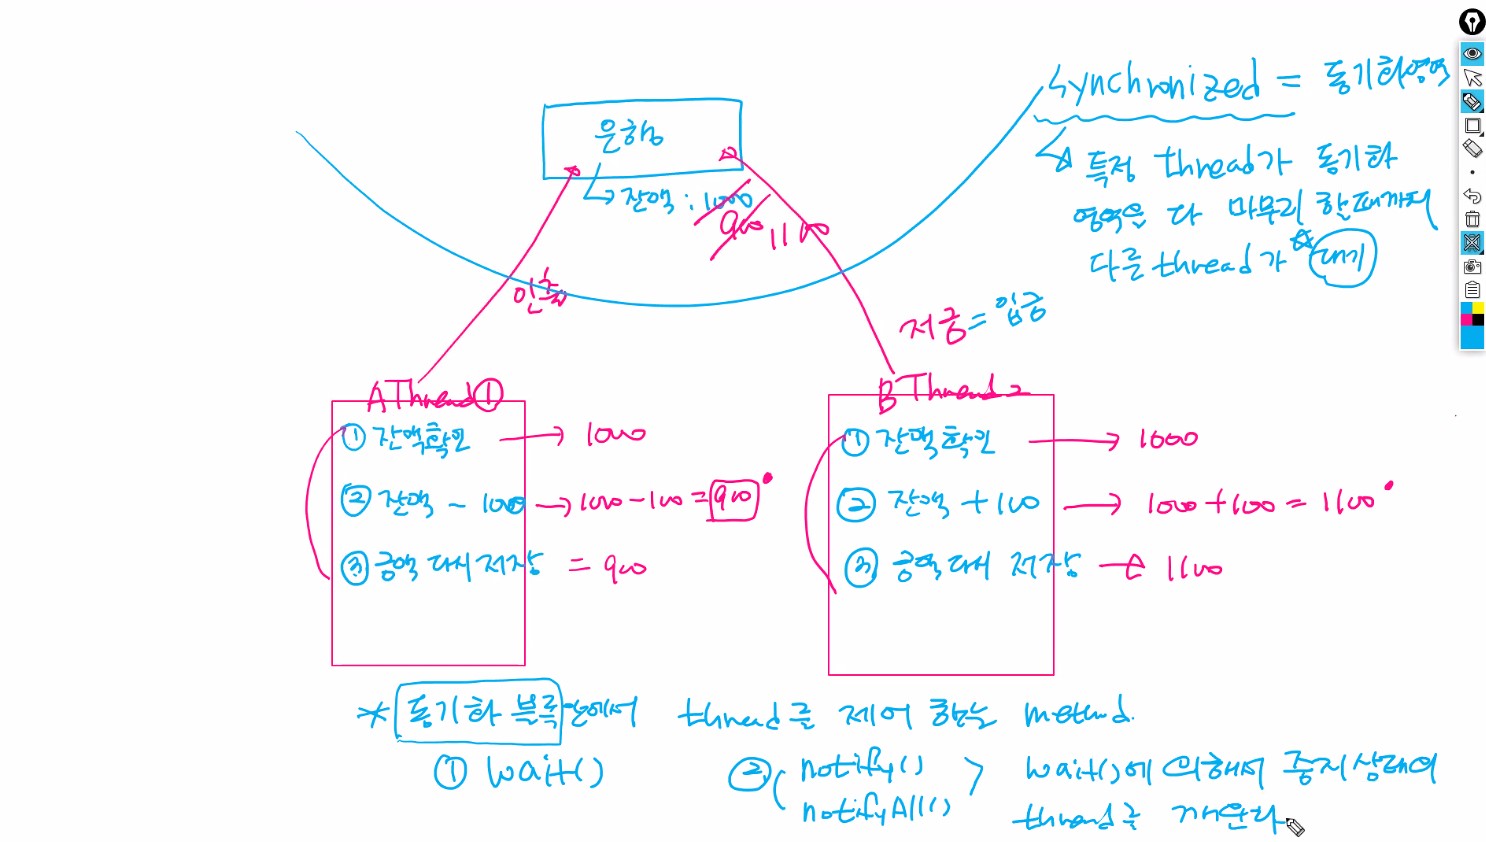 synchronized = 동기화영역
은행
특정 thread가 동기화
영역을 다 마무리 할때까지
다른 thread가 대기
잔액 : 1000
900 1100
인출
저금 = 입금
A Thread ①
B Thread 2
① 잔액확인 → 1000
② 잔액 - 100 → 1000 - 100 = 900
③ 금액 다시 저장 = 900
① 잔액확인 → 1000
② 잔액 + 100 → 1000 + 100 = 1100
③ 금액 다시 저장 1100
* 동기화 블록 안에서 thread를 제어 하는 method.
① wait()
② notify()
notifyAll()
wait()에 의해서 중지상태의
thread를 깨운다